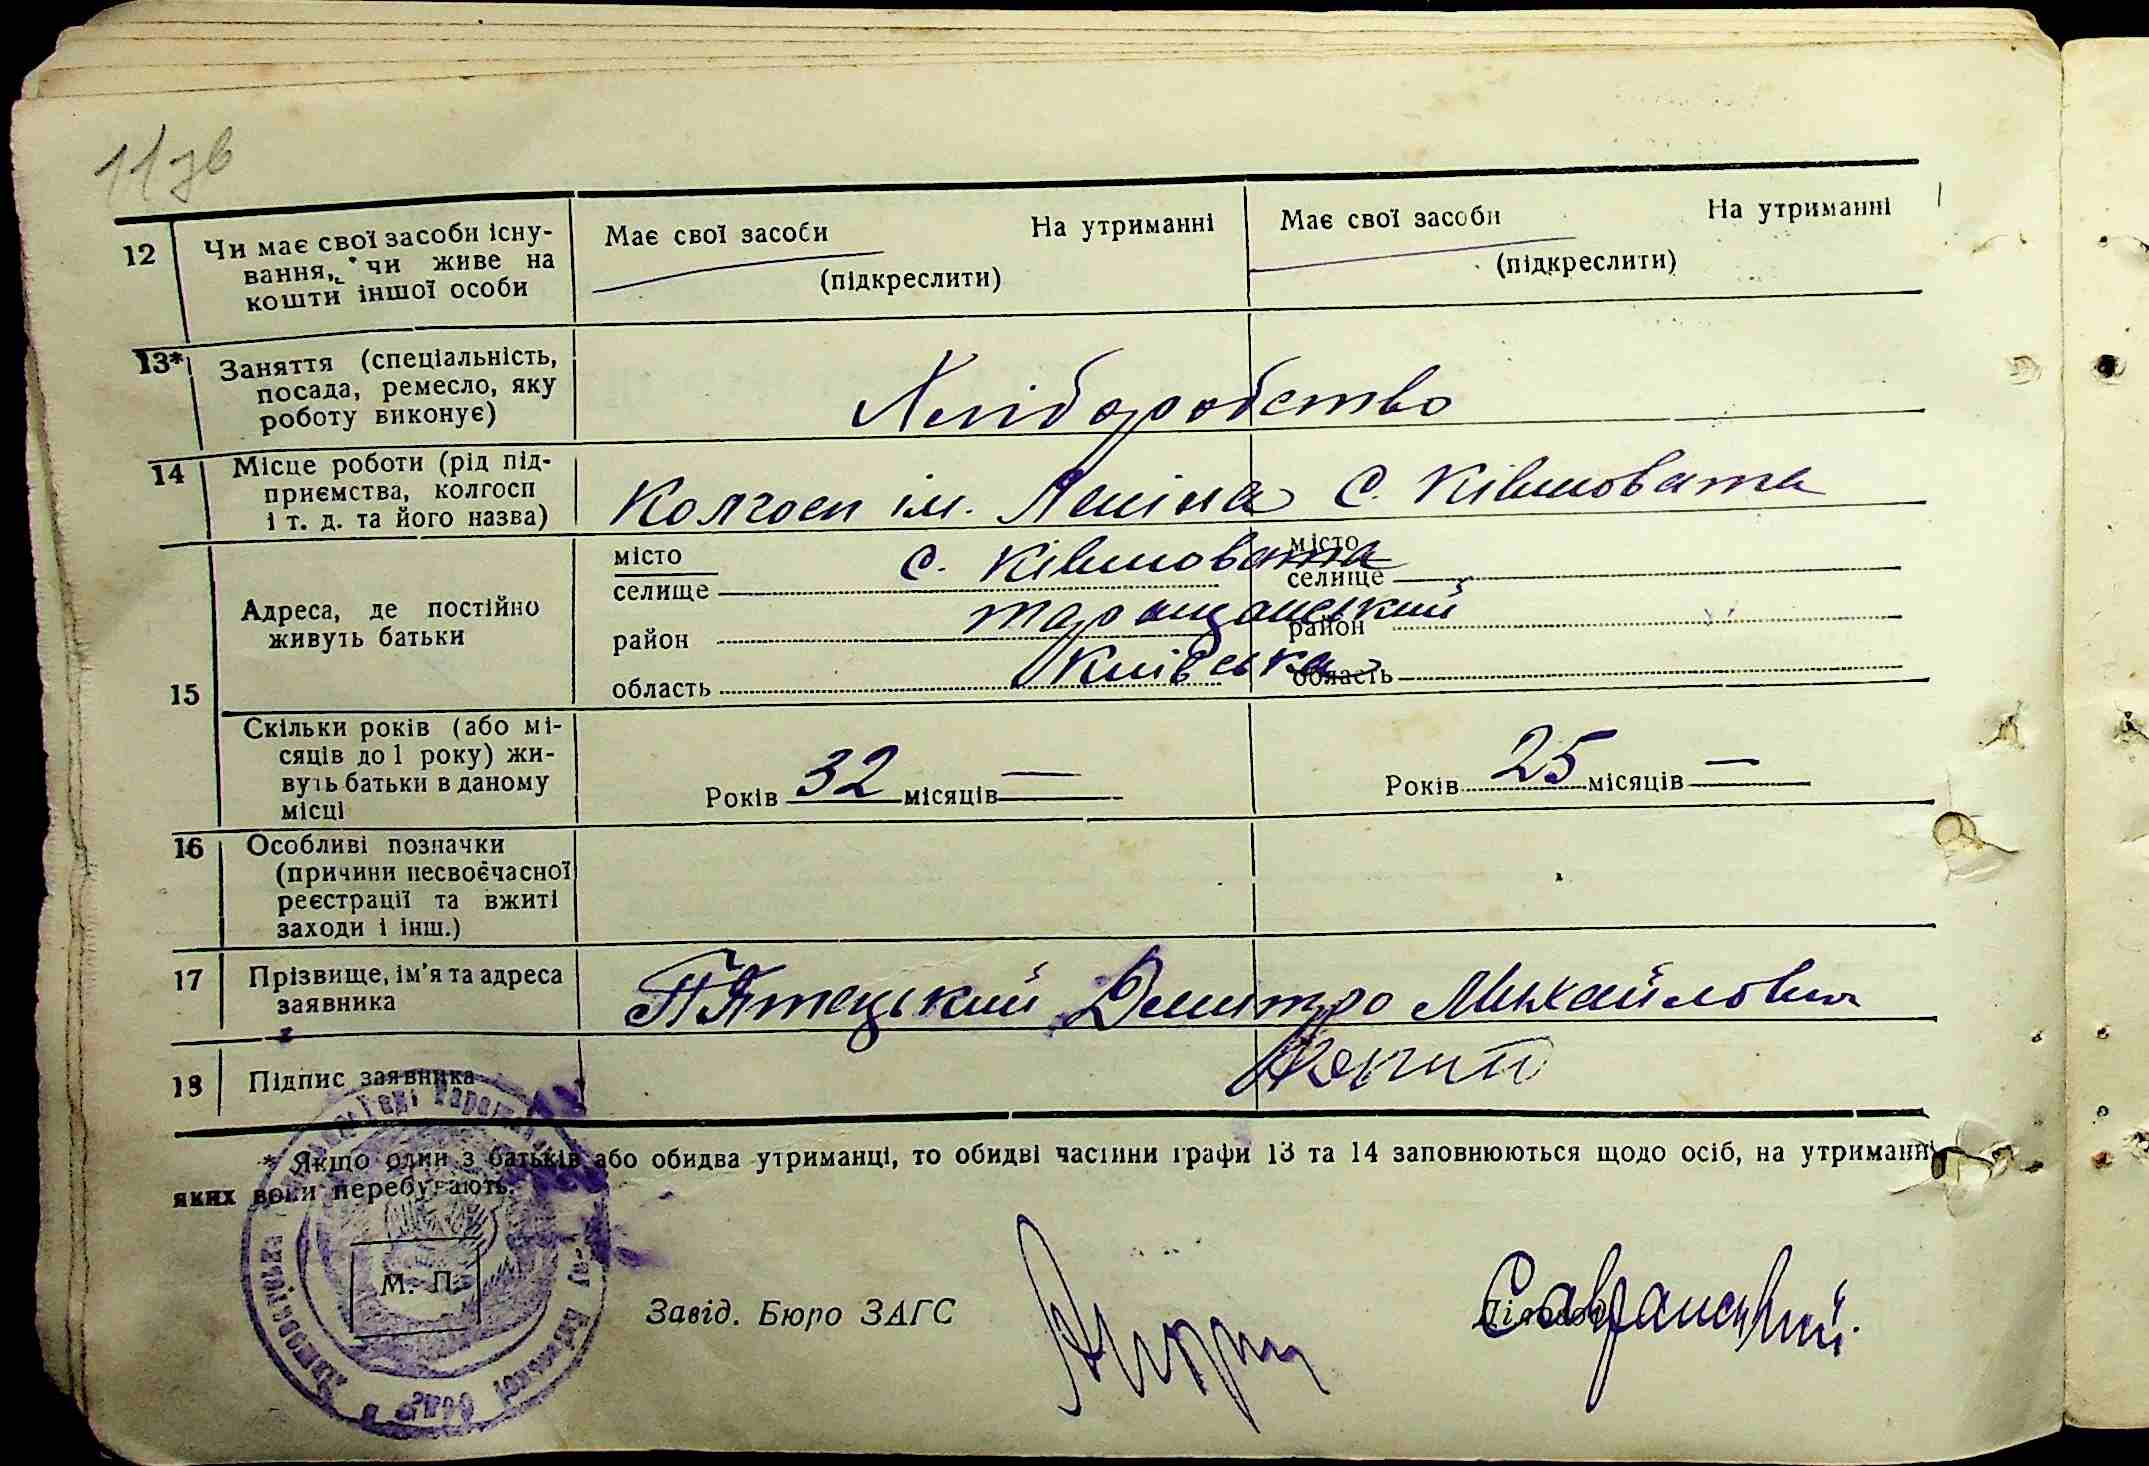 11зв
12 Чи має свої засоби існу-
вання, чи живе на
кошти іншої особи
Має свої засоби На утриманні
(підкреслити)
Має свої засоби На утриманні
(підкреслити)
13* Заняття (спеціальність,
посада, ремесло, яку
роботу виконує)
Хліборобство
14 Місце роботи (рід під-
приємства, колгосп
і т. д. та його назва)
Колгосп ім. Леніна с. Ківшовата
15 Адреса, де постійно
живуть батьки
місто
селище с. Ківшовата
район таращанський
область Київська
місто
селище
район
область
Скільки років (або мі-
сяців до 1 року) жи-
вуть батьки в даному
місці
Років 32 місяців —
Років 25 місяців —
16 Особливі позначки
(причини несвоєчасної
реєстрації та вжиті
заходи і інш.)
17 Прізвище, ім'я та адреса
заявника
П'ятецький Дмитро Михайлович
18 Підпис заявника
* Якщо один з батьків або обидва утриманці, то обидві частини графи 13 та 14 заповнюються щодо осіб, на утриманні
яких вони перебувають.
М. П.
Завід. Бюро ЗАГС
Діловод
Савранський